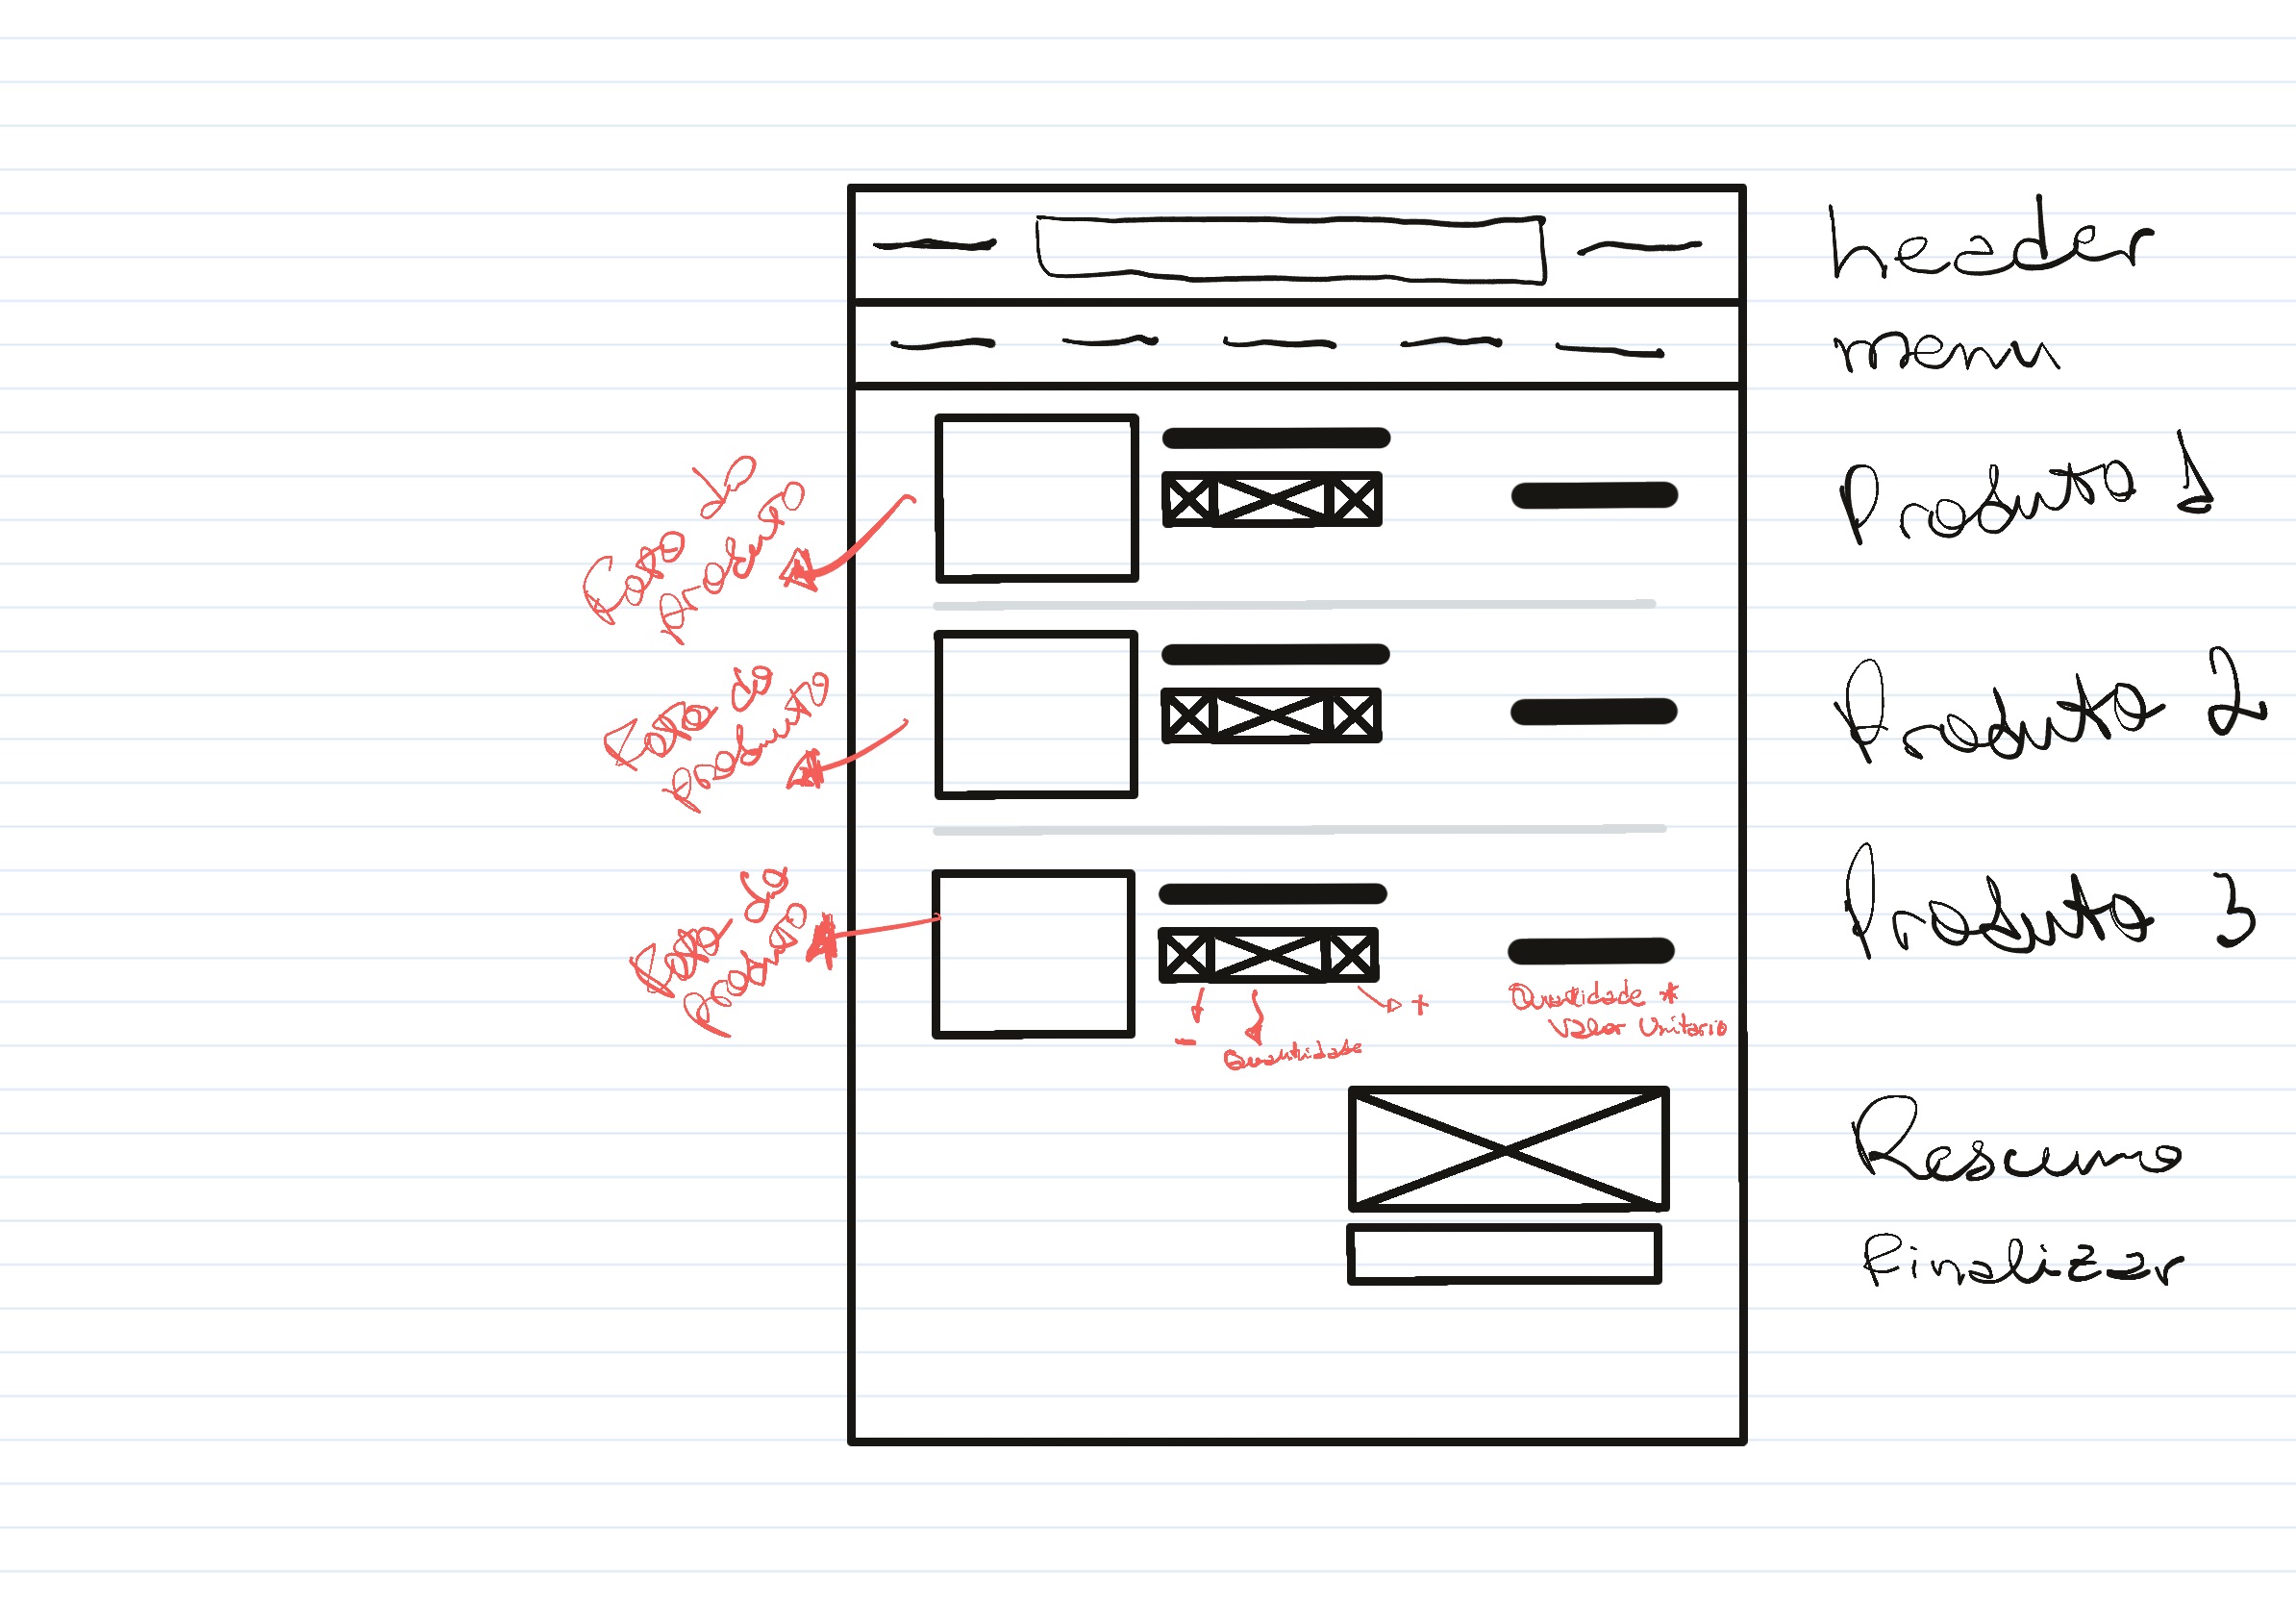 header
menu
Foto do
produto
Produto 1
Foto do
produto
Produto 2
Foto do
produto
Produto 3
-
Quantidade
+
Quantidade *
Valor Unitario
Resumo
Finalizar